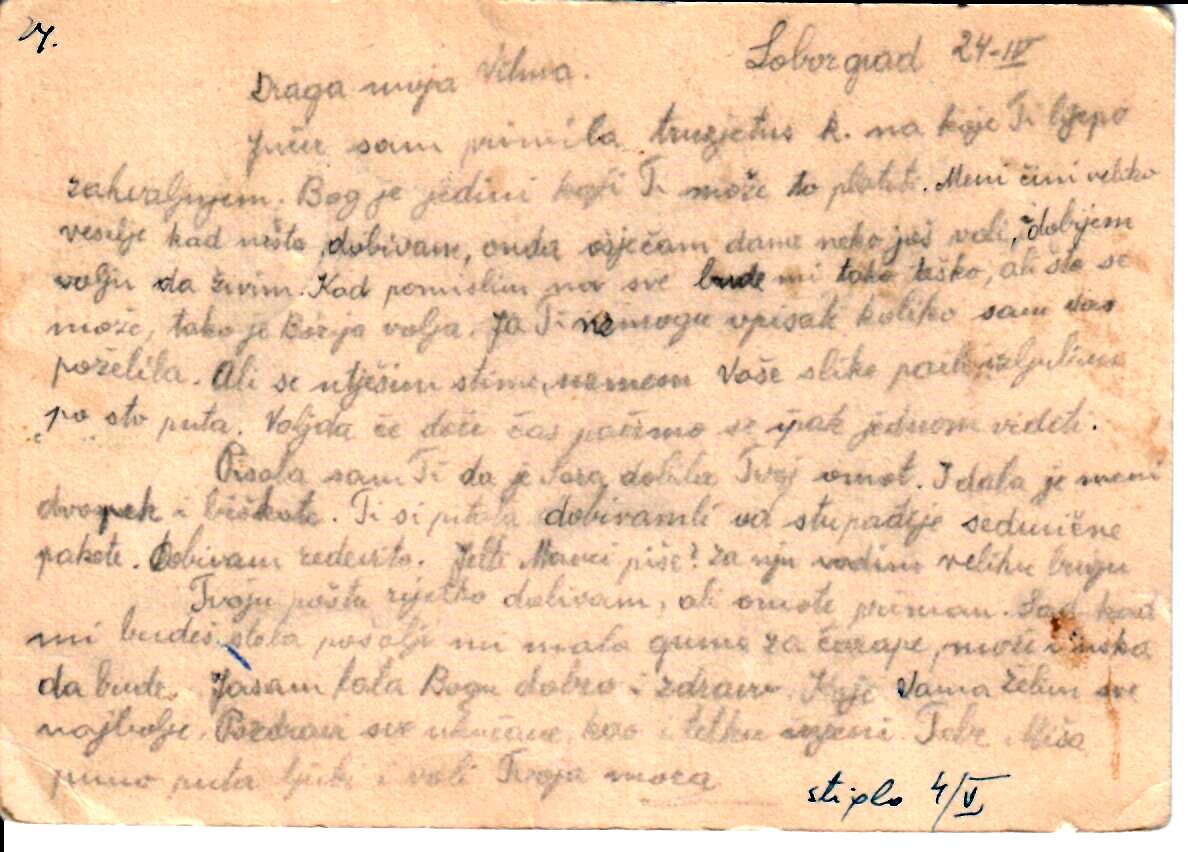 24.
Loborgrad 24-IV
Draga moja Vilma.
Jučer sam primila k. na koje Ti lijepo
zahvaljujem. Bog je jedini koji Ti može to platiti. Meni čini veliko
veselje kad nešto dobivam, onda osječam dame neko još voli, dobijem
volju da živim. Kad pomislim na sve bude mi tako teško, ali što se
može, tako je Božija volja. Ja Ti nemogu opisati koliko sam Vas
poželila. Ali se utješim stime, uzmem Vaše slike pa ih
po sto puta. Valjda če doči čas pačemo se ipak jednom videti.
Pisala sam Ti da je dobila Tvoj omot. I dala je meni
dvopek i biškote. Ti si pitala dobivamli od stupadije sedmične
pakete. Dobivam redovito. Jelte Mavci piše? Za nju vodim veliku brigu
Tvoju poštu rijetko dobivam, ali omote primam. Sad kad
mi budeš slala pošalji mi malo gume za čarape, može i uska
da bude. Jasam hvala Bogu dobro i zdravo. Koje Vama želim sve
najbolje. Pozdravi sve kao i tetku Tebe, Miša
puno puta ljubi i voli Tvoja mama
stiglo 4/V